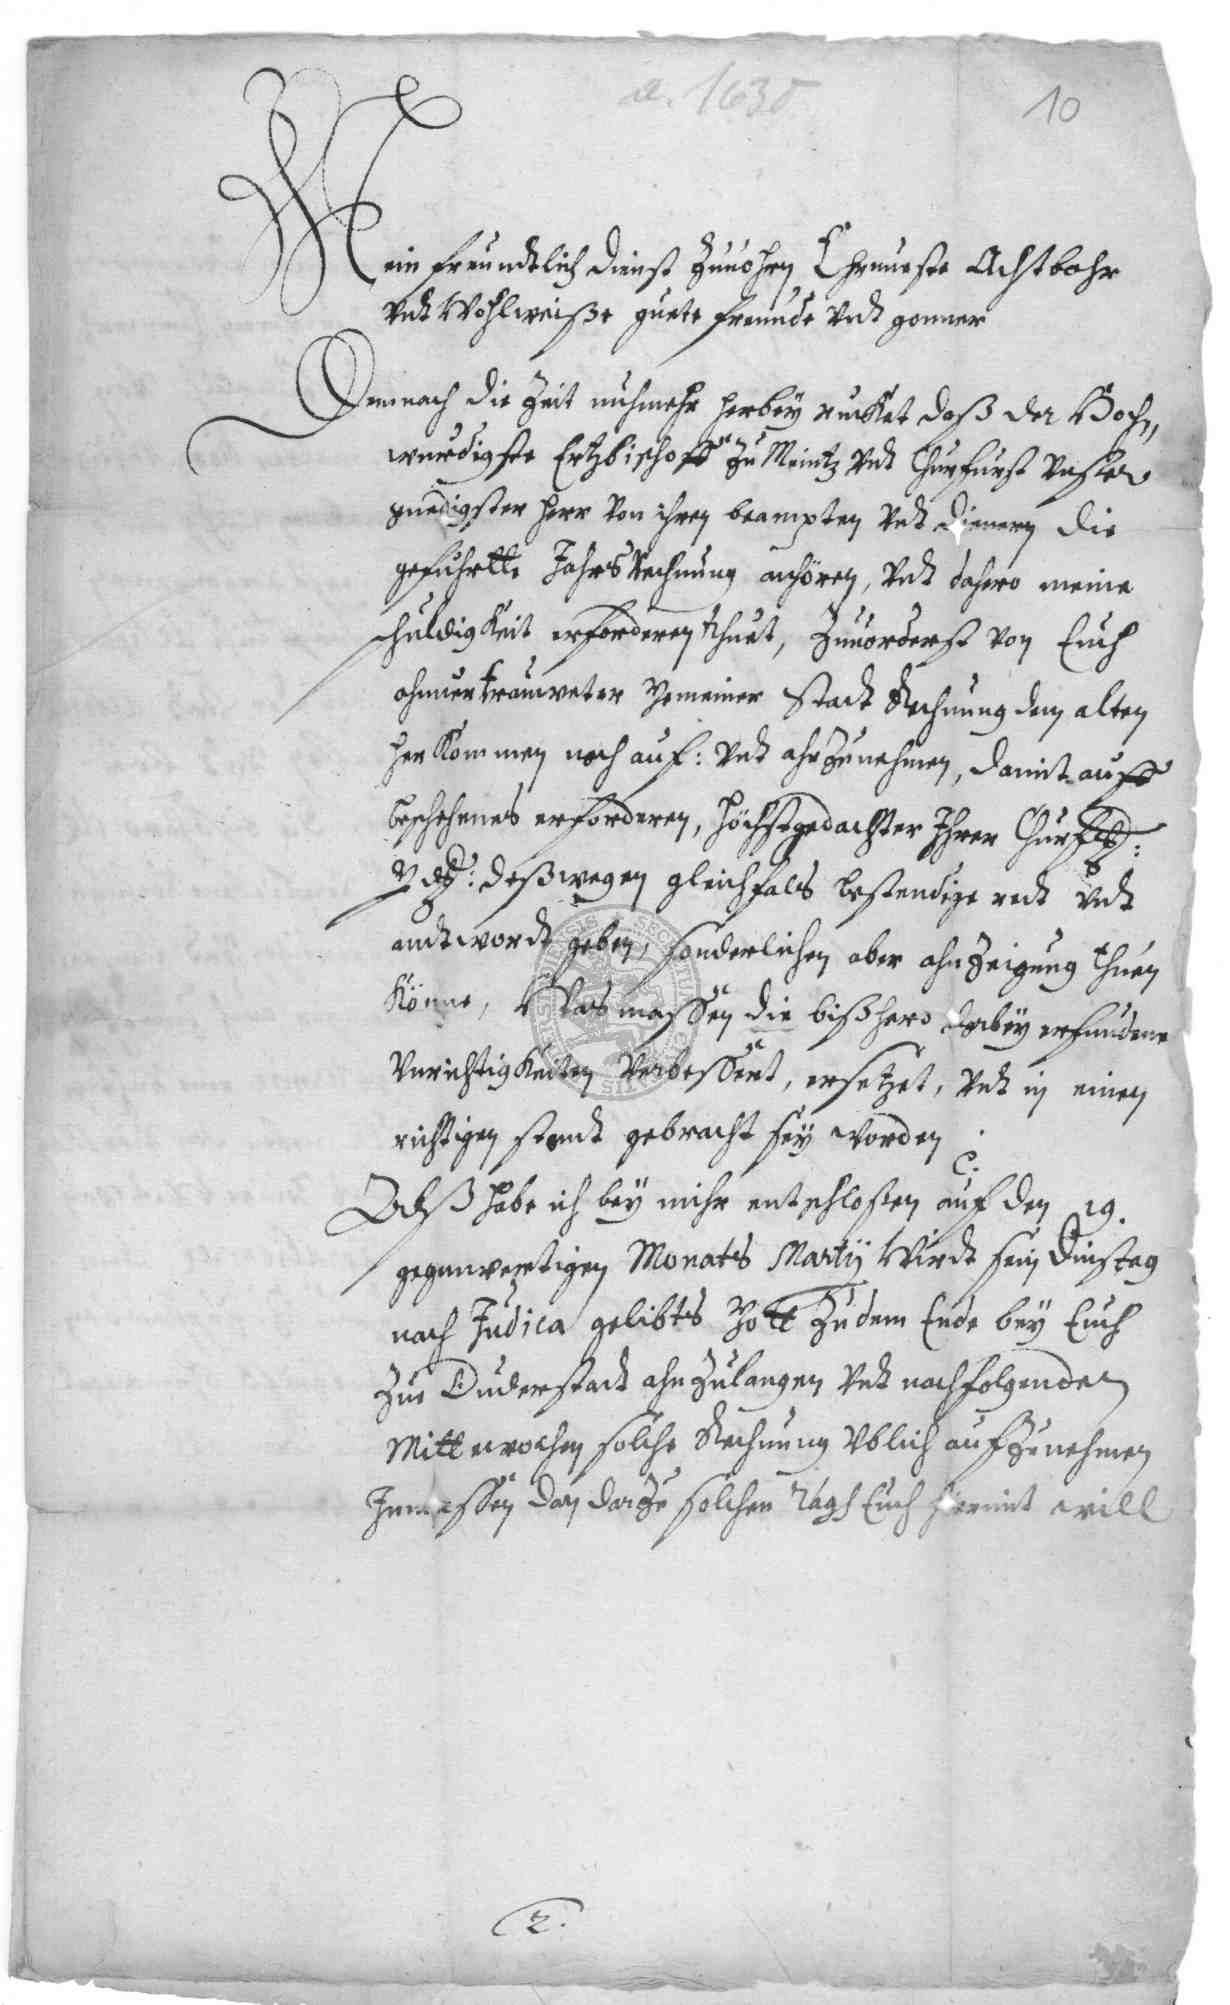 a. 1630
10
Mein freundtlich dienst zuuohrn Ehrnueste Achtbahr
vndt Wohlweiße guete freunde vndt gonner
Demnach die Zeit nuhmehr herbey rucket daß der Hoch„
wurdigste Ertzbischoff zu Meintz vndt Churfurst vnser
gnedigster Herr von ihren beampten vndt dienern die
gefuhrtte JahrsRechnung anhören, vndt dahero meine
schuldigkeit erforderen thuet, zuuorderst von Euch
ahnuertrauweter Gemeiner Stadt Rechnung dem alten
herkommen nach auf: vndt ahnzunehmen, damit auff
beschehenes erforderen, höchstgedachter Ihrer Churfl:
Gd: deßwegen gleichfals bestendige redt vndt
andtwordt geben, sonderlichen aber ahnzeigung thuen
könne, Was massen die bißhero darbey erfundene
Vnrichtigkeiten verbessert, ersetzet, vndt in einen
richtigen standt gebracht sey worden.
Alß habe ich bey mihr entschloßen auf den 19.
gegenwertigen Monats Martij Wirdt sein Dinstag
nach Judica geliebts Gott zu dem Ende bey Euch
zue Duderstadt ahnzulangen vndt nachfolgenden
Mittwochen solche Rechnung vblich aufzunehmen
Inmassen dan darzu solchen Tagh Euch hiermit will
2.